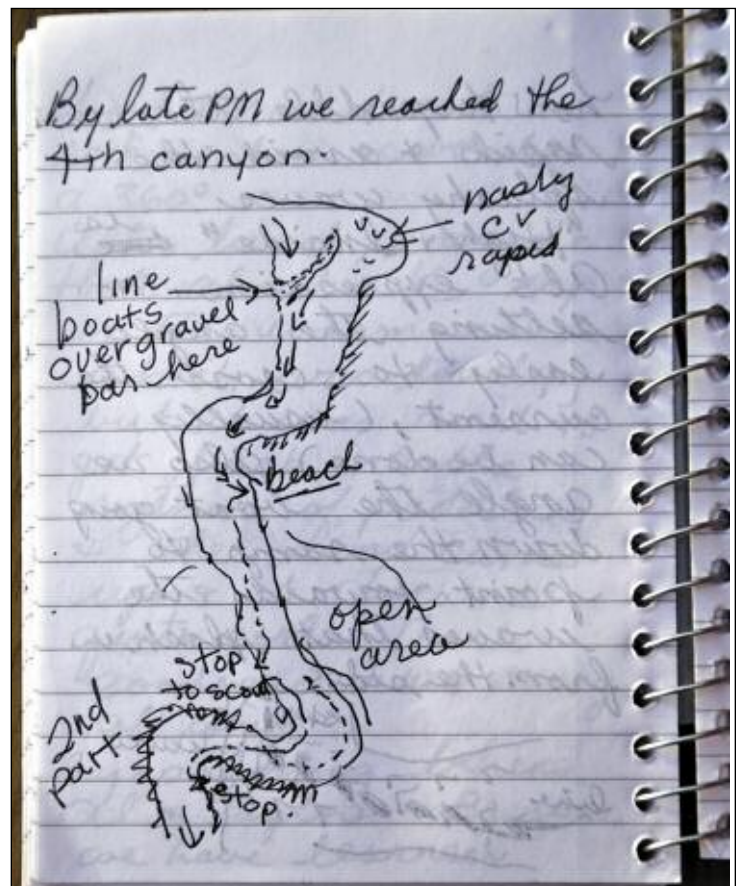 By late PM we reached the
4th canyon.
nasty
CV
rapid
line
boats
over gravel
bar here
beach
open
area
stop
to scout
2nd
part
stop.